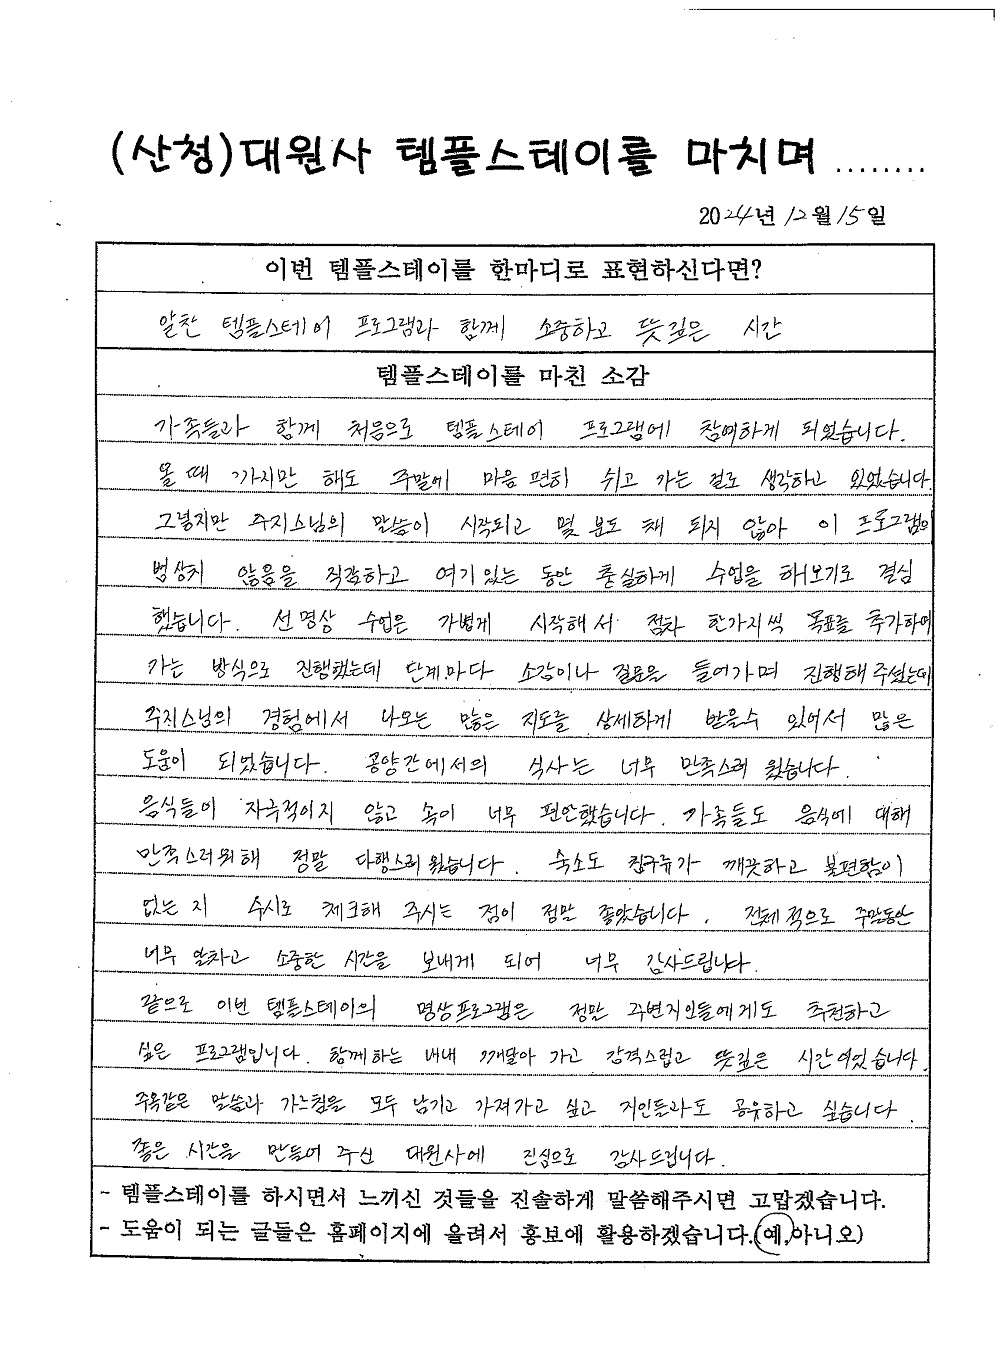 (산청)대원사 템플스테이를 마치며 ........
2024년 12월 15일
이번 템플스테이를 한마디로 표현하신다면?
알찬 템플스테이 프로그램과 함께 소중하고 뜻깊은 시간
템플스테이를 마친 소감
가족들과 함께 처음으로 템플스테이 프로그램에 참여하게 되었습니다.
올 때 까지만 해도 주말에 마음 편히 쉬고 가는 걸로 생각하고 있었습니다
그렇지만 주지스님의 말씀이 시작되고 몇 분도 채 되지 않아 이 프로그램이
범상치 않음을 직감하고 여기있는 동안 충실하게 수업을 해보기로 결심
했습니다. 선명상 수업은 가볍게 시작해서 점차 한가지씩 목표를 추가하여
가는 방식으로 진행했는데 단계마다 소감이나 질문을 들어가며 진행해주셨는데
주지스님의 경험에서 나오는 많은 지도를 상세하게 받을수 있어서 많은
도움이 되었습니다. 공양간에서의 식사는 너무 만족스러웠습니다.
음식들이 자극적이지 않고 속이 너무 편안했습니다. 가족들도 음식에 대해
만족스러워해 정말 다행스러웠습니다. 숙소도 침구류가 깨끗하고 불편함이
없는 지 수시로 체크해 주시는 점이 정말 좋았습니다. 전체적으로 주말동안
너무 알차고 소중한 시간을 보내게 되어 너무 감사드립니다.
끝으로 이번 템플스테이의 명상프로그램은 정말 주변지인들에게도 추천하고
싶은 프로그램입니다. 함께하는 내내 깨달아 가고 감격스럽고 뜻깊은 시간여었습니다.
주옥같은 말씀과 가느침을 모두 남기고 가져가고 싶고 지인들과도 공유하고 싶습니다.
좋은 시간을 만들어 주신 대원사에 진심으로 감사드립니다.
- 템플스테이를 하시면서 느끼신 것들을 진솔하게 말씀해주시면 고맙겠습니다.
- 도움이 되는 글들은 홈페이지에 올려서 홍보에 활용하겠습니다.(예,아니오)